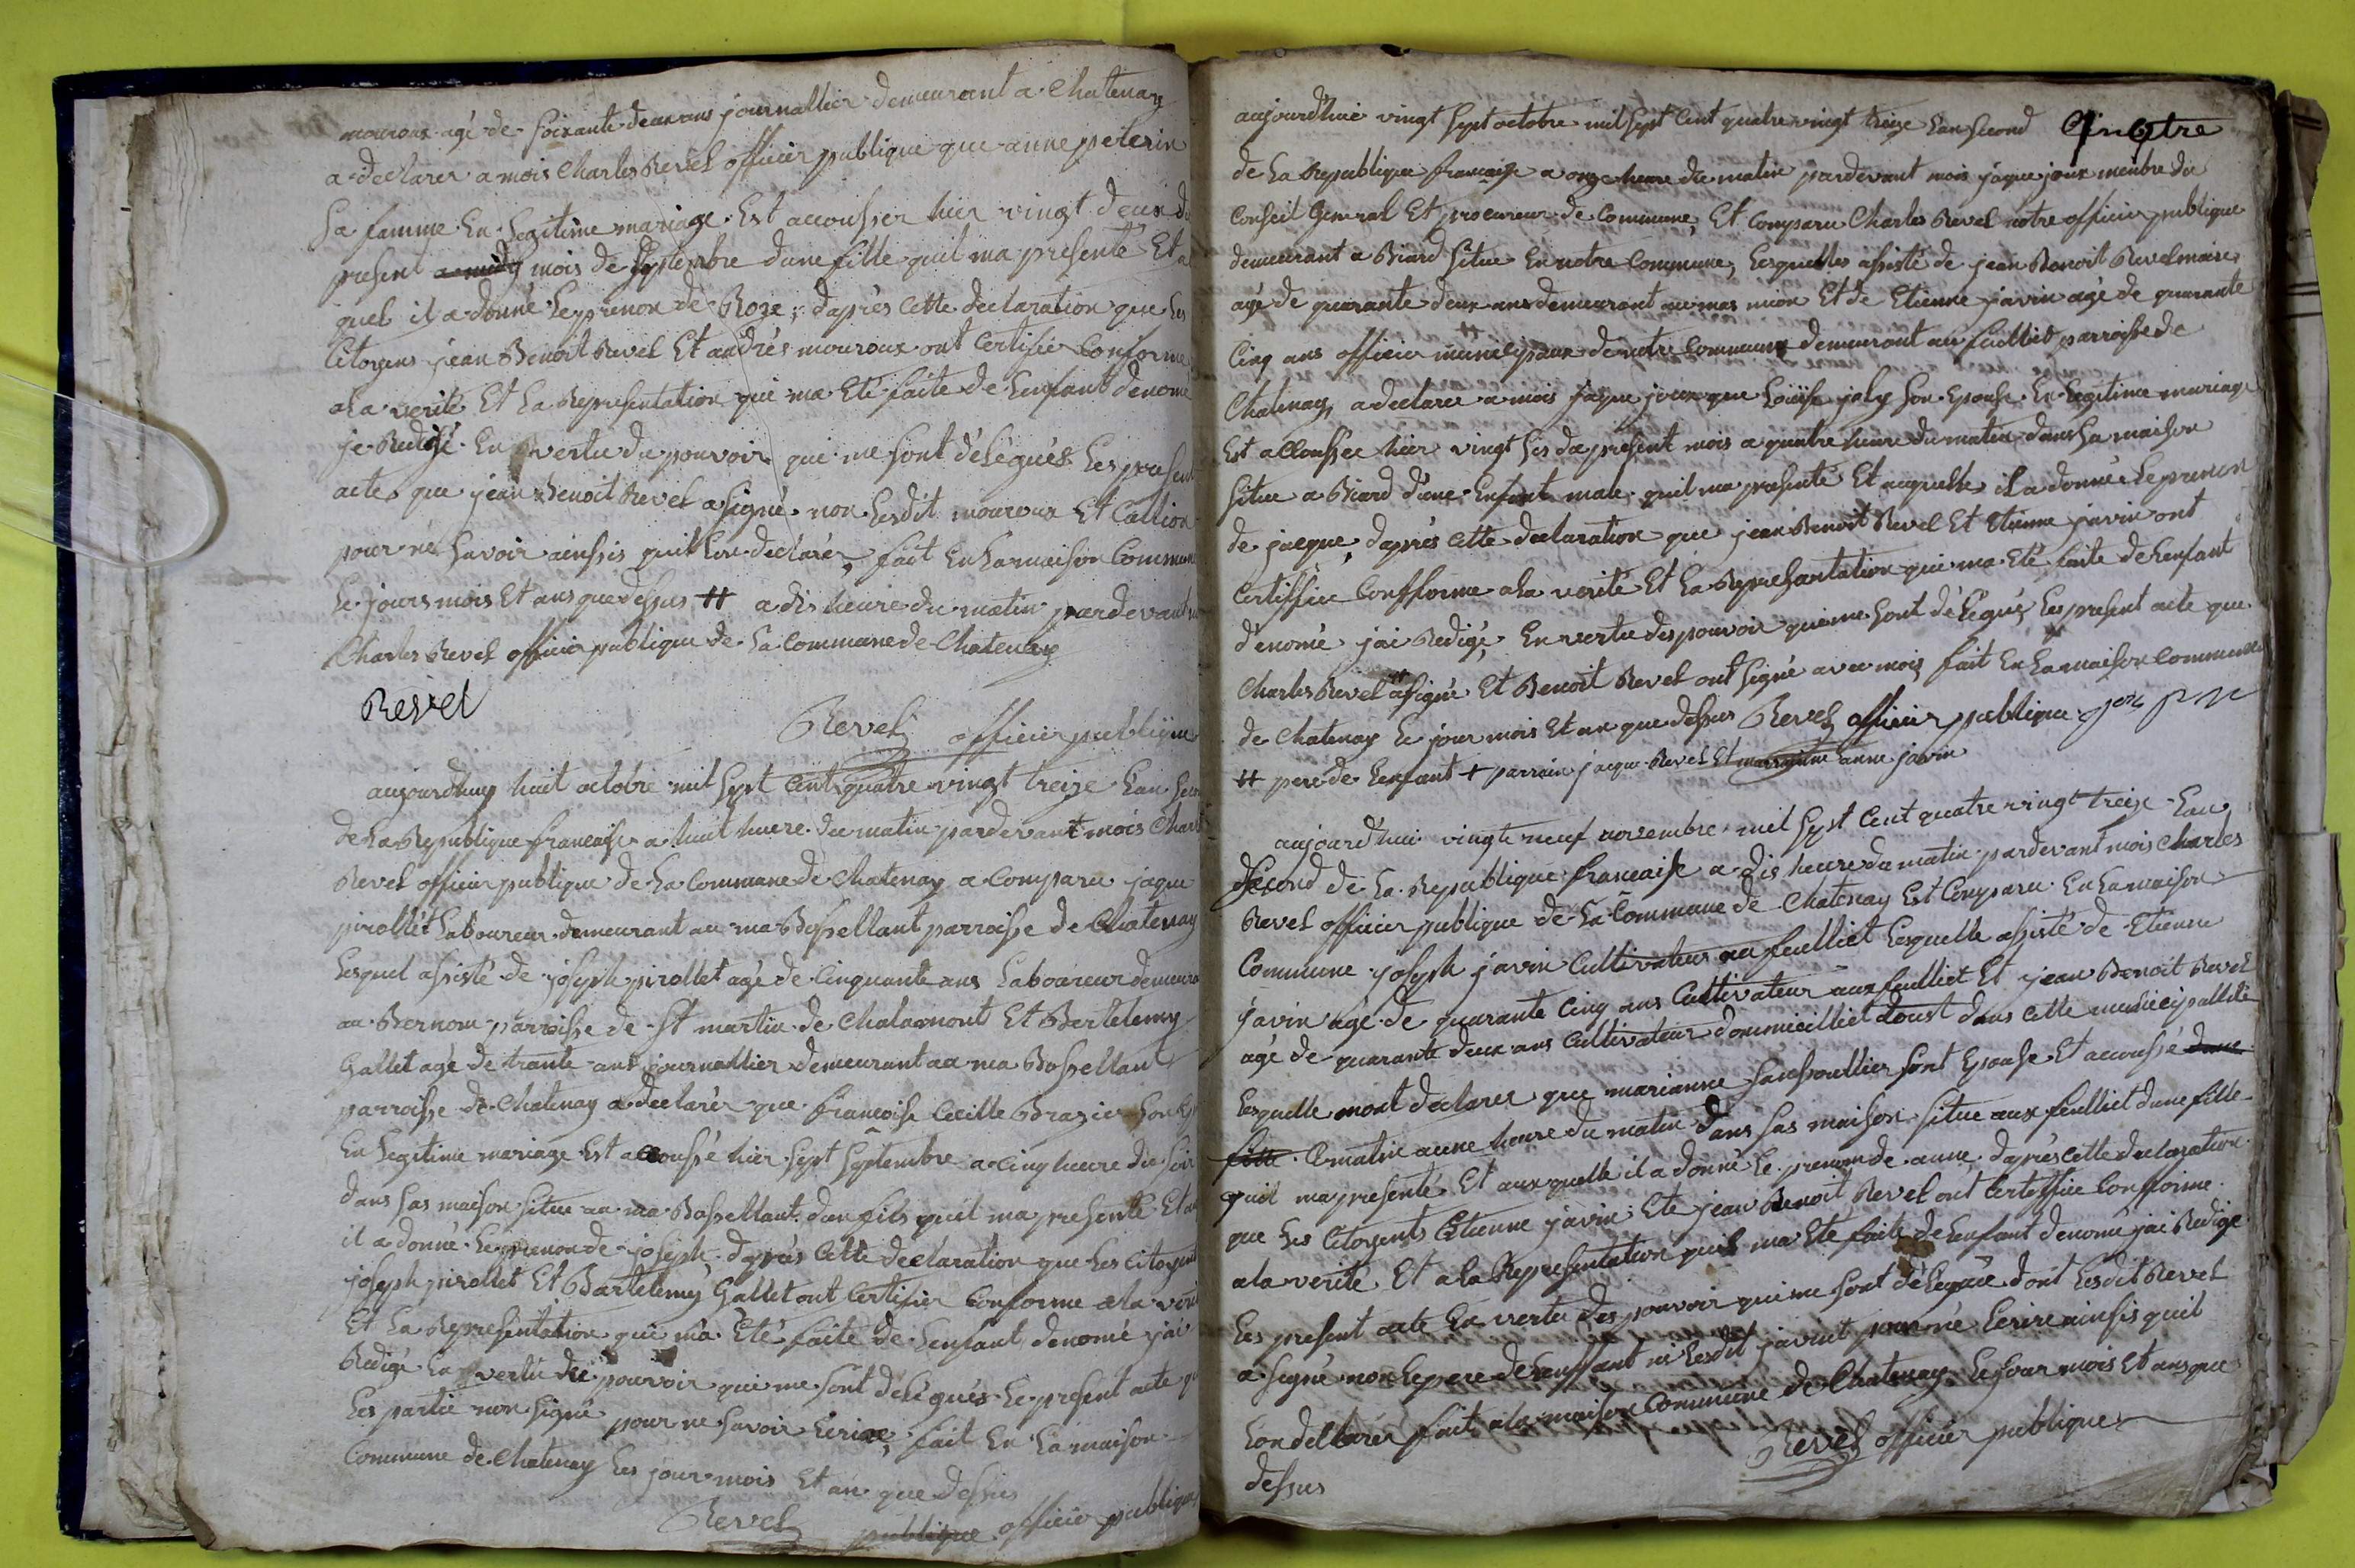 mouroux agé de soixante deux ans journallier demeurant a Chatenay
a declarer a mois Charles Revel officier publique que anne peterin
sa famme En legitime mariage Est accousser hier vingt deux du
present a midy mois de septembre dune fille quil ma presenté Et a
quel il a donné le prenon de Roze, d'aprés cette declaration que les
Citoyens jean Benoit Revel Et andrés mouroux ont Certifier Conforme
ala verité Et la Representation qui ma Eté faite de Lenfant denomé
je Redigé En vertu du pouvoir qui me sont délégués les present
actes que jean Benoit Revel a signé non lesdit mouroux Et Callion
pour né savoir ainssis quil lon declarér, fait En la maison Commune
Le jours mois Et ans que dessus # a dis heure du matin pardevant
Charles Revel officier publique de la Commune de Chatenay
Revel
Revel officier publique
aujourdhuy huit octobre mil sept Cent quatre vingt treize Lan
de la Republique francaise a huit heure du matin pardevant mois Charles
Revel officier publique de la Commune de Chatenay a Comparu jaque
pirollet Laboureur demeurant au ma Bossellant parroisse de Chatenay
Lesquel assisté de joseph pirollet agé de Cinquante ans Laboureur demeura
au Bernon parroisse de St martin de Chalamont Et Bertelemy
Gallet agé de trante ans journallier demeurant au ma Bossellant
parroisse de Chatenay a declarér que francoise Cecille Brazier son
En legitime mariage Est accoussé hier sept septembre a Cinq heure du soir
dans sas maison situe au ma Bossellant dun fils quil ma presenté Et au
il a donné le prenon de joseph, d'aprés Cette declaration que les Citoyens
joseph pirollet Et Bartelemy Gallet ont Certifier Conforme ala verité
Et la Representation qui m'a Eté faite de Lenfant denomé j'ai
Redigé En vertu du pouvoir qui me sont delégués le present acte que
les partie non signé pour ne savoir Ecrire, fait En la maison
Commune de Chatenay les jour mois Et an que dessus
Revel publique officier publique
aujourdhui vingt sept octobre mil sept Cent quatre vingt treize Lan second
de la Republique francaise a onze heure du matin pardevant mois jaque joux membre du
Conseil General Et procureur de Commune, Et Comparu Charles Revel notre officier publique
demeurant a Biard situe En notre Commune, Lesquelles assisté de jean Benoit Revel maire
agé de quarante deux ans demeurant au mas mion Et de Etienne javin agé de quarante
Cinq ans officier municipaux de notre Commune demeurant au fuilliet parroisse de
Chatenay, a declarer a mois jaque joux que Louise joly son Epouse En legitime mariage
Est accoussée hier vingt sis du present mois a quatre heure du matin dans sa maison
situe a Biard d'une Enfant male quil ma presenté Et auquelle il a donné le prenon
de jacque, d'aprés Cette declaration que jean Benoit Revel Et Etienne javin ont
Certiffier Confforme ala verité Et la Represantation qui ma Eté faite de Lenfant
d'enomé j'ai Redigé En vertu des pouvoir qui me sont délégués les present acte que
Charles Revel # a signé Et Benoit Revel ont signé avec mois, fait En la maison Commune
de Chatenay le jour mois Et an que dessus Revel officier publique
# pere de Lenfant + parrain jaque Revel Et marraine anne javin
aujourd'hui vingte neuf novembre mil sept Cent quatre vingt treize Lan
second de la Republique francaise a dis heure du matin pardevant mois Charles
Revel officier publique de la Commune de Chatenay Est Comparu En la maison
Commune joseph javin Cultivateur au feuilliet Lesquelle assisté de Etienne
javin agé de quarante Cinq ans Cultivateur aux feuilliet Et jean Benoit Revel
agé de quarante deux ans Cultivateur dommicilliet doust dans Cette municipallité
Lesquelle mont declarer que marianne sont Epouse Et accoussé dune
fille Cematin aune heure du matin dans sas maison situe aux feuilliet dune fille
quil ma presenté Et aux quelle il a donné le prenom de anne d'aprés Cette declaration
que les Citoyents Etienne javin Ete jean Benoit Revel ont Certiffier Confforme
ala verité Et ala Representation quil ma Eté faite de Lenfant denomé jai Redigé
les present acte En vertu des pouvoir qui me sont délégués dont lesdit Revel
a signé non le pere de Lenffant ni lesdit javint pour né Ecrire ainsis quil
lon delbarer fait ala maison Commune de Chatenay, le jour mois Et ans que
dessus Revel officier publique